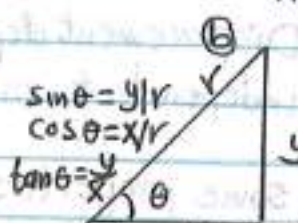 b
r
sinθ = y/r
cosθ = x/r
tanθ = y/x
y
θ